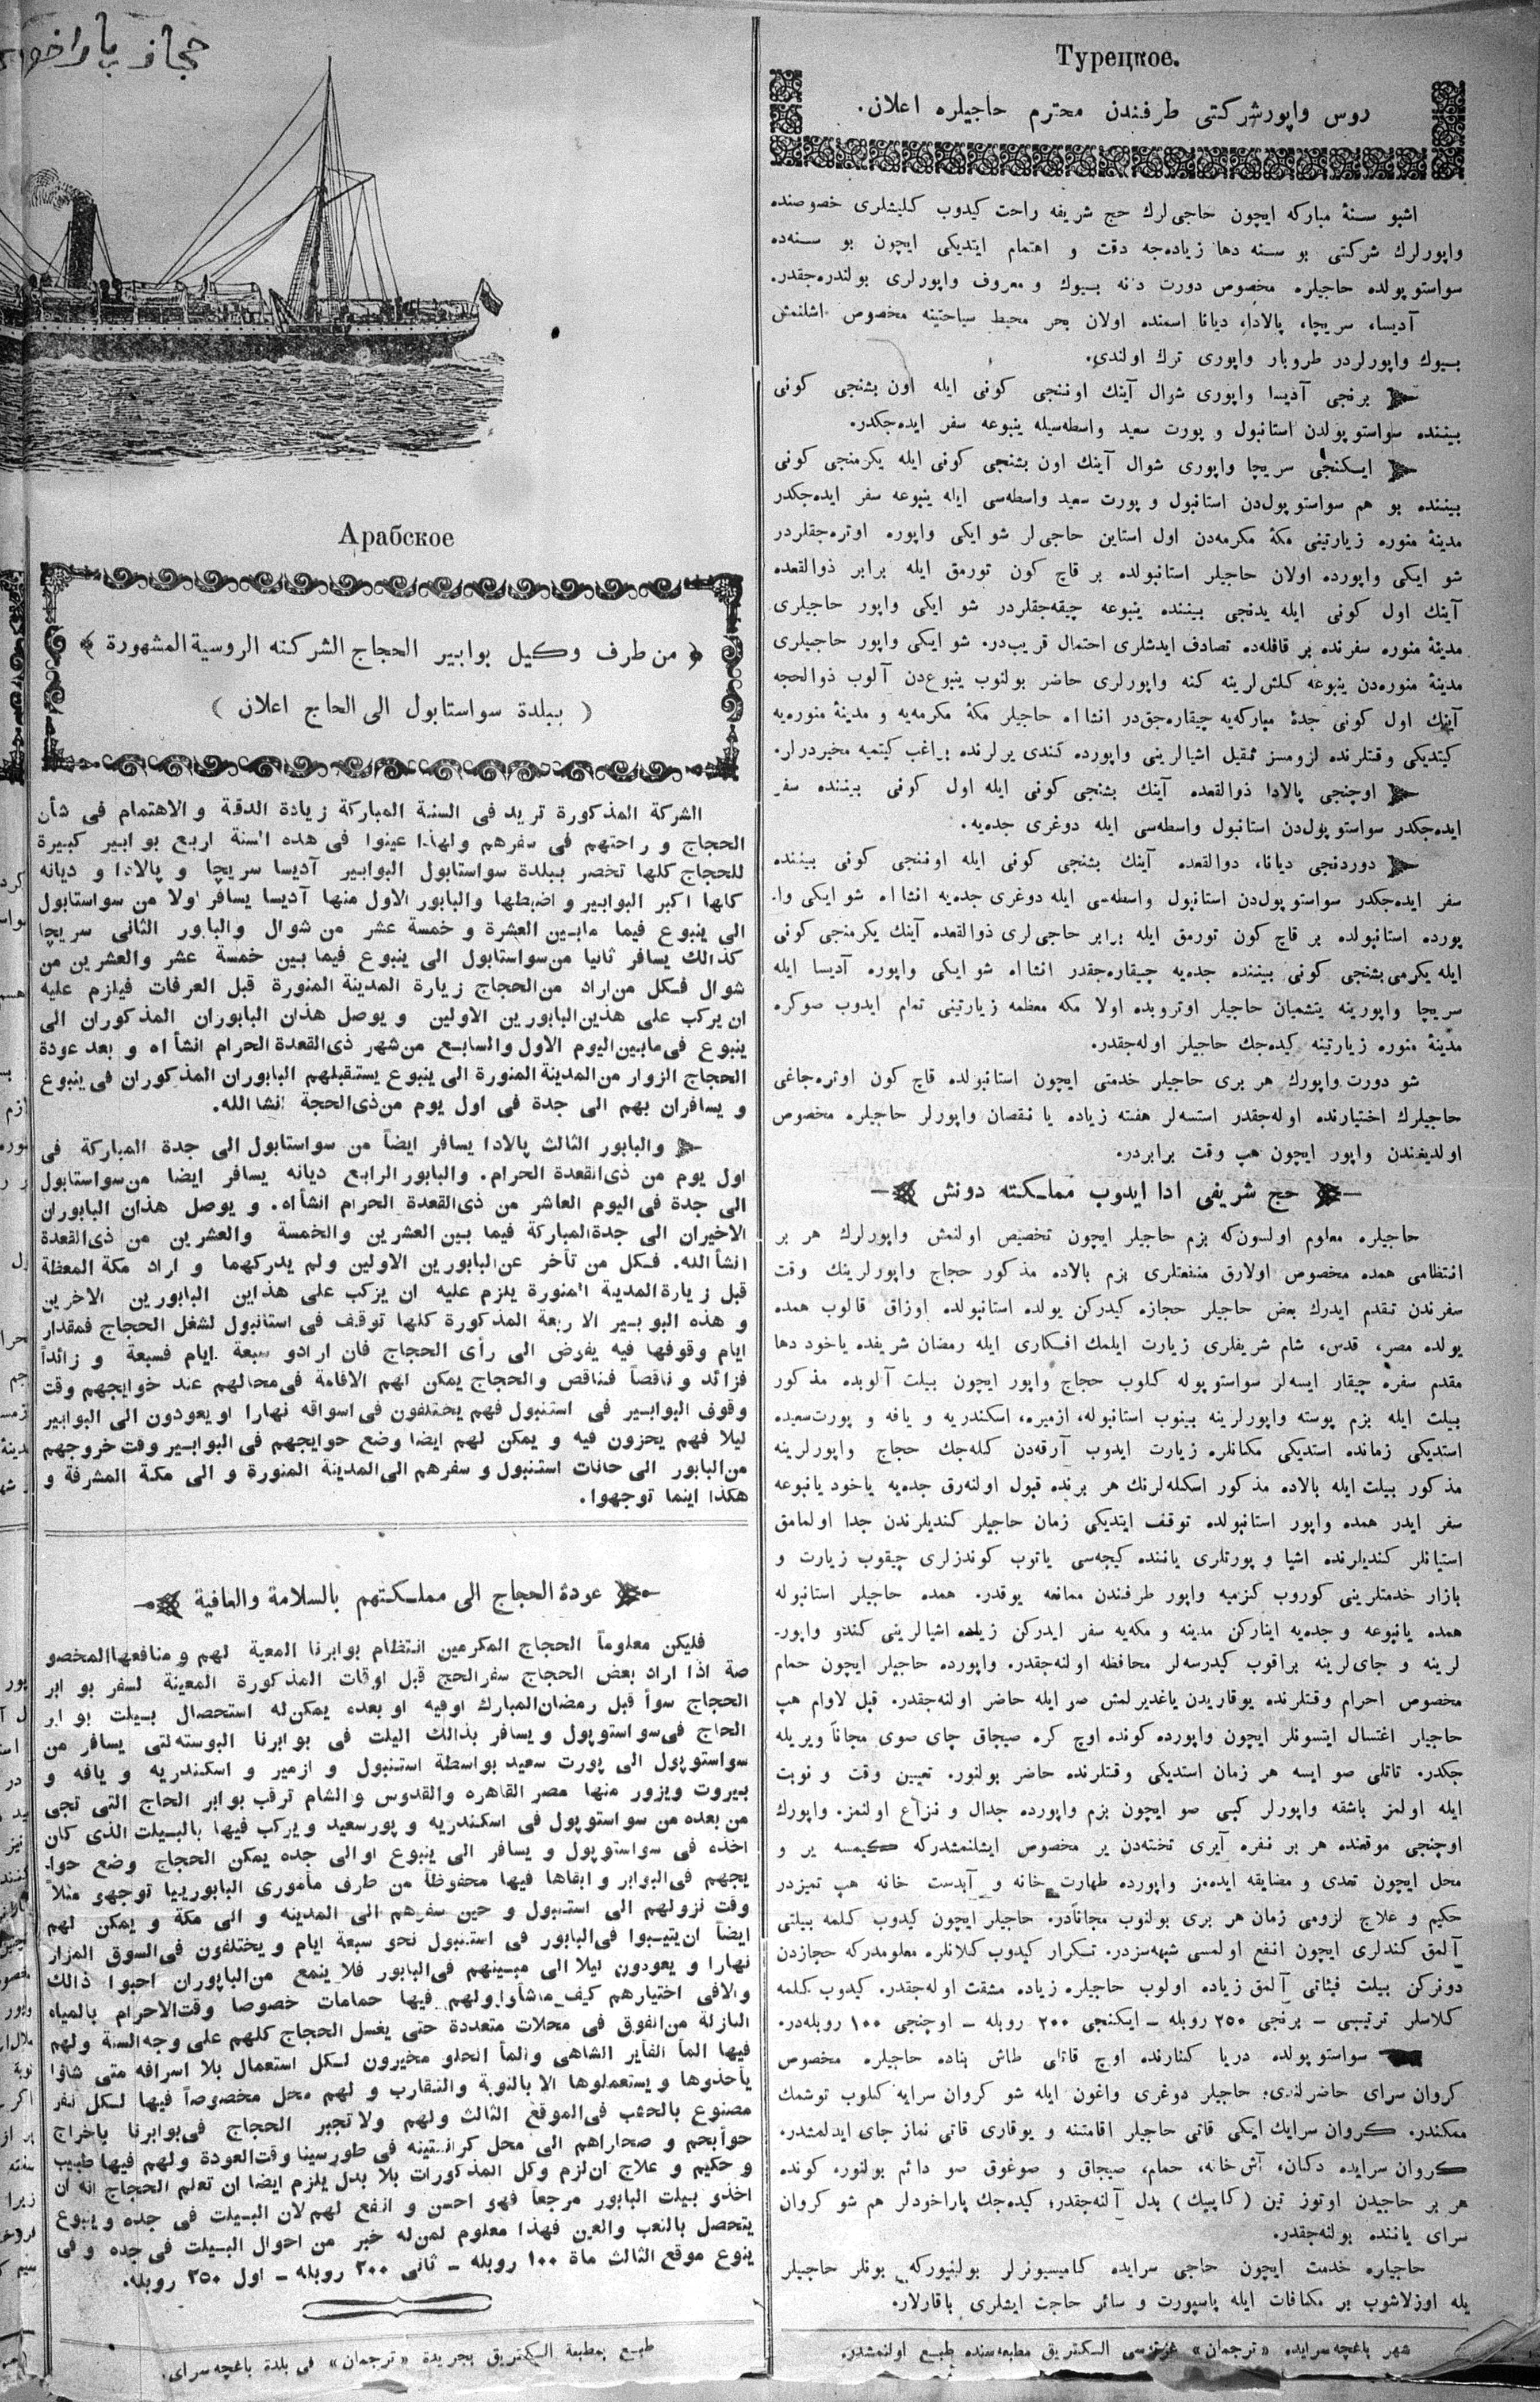 Турецкое.
روس واپور شركتی طرفندن محترم حاجیلره اعلان.
اشبو سنهٔ مباركه ایچون حاجی‌لرك حج شریفه راحت كیدوب كلیشلری خصوصنده
واپورلرك شركتی بو سنه دها زیاده‌جه دقت و اهتمام ایتدیكی ایچون بو سنه‌ده
سواستوپولده حاجیلره مخصوص دورت دانه بیوك و معروف واپورلری بولندره‌جقدر.
آدیسا، سریچا، پالادا، دیانا اسمنده اولان بحر محیط سیاحتینه مخصوص اشلنمش
بیوك واپورلردر طروبار واپوری ترك اولندی.
برنجی آدیسا واپوری شوال آینك اوننجی كونی ایله اون بشنجی كونی
بیننده سواستوپولدن استانبول و پورت سعید واسطه‌سیله ینبوعه سفر ایده‌جكدر.
ایكنجی سریچا واپوری شوال آینك اون بشنجی كونی ایله یكرمنجی كونی
بیننده بو هم سواستوپول‌دن استانبول و پورت سعید واسطه‌سی ایله ینبوعه سفر ایده‌جكدر
مدینهٔ منوره زیارتینی مكهٔ مكرمه‌دن اول استاین حاجی‌لر شو ایكی واپوره اوتره‌جقلردر
شو ایكی واپورده اولان حاجیلر استانبولده بر قاچ كون تورمق ایله برابر ذوالقعده
آینك اول كونی ایله یدنجی بیننده ینبوعه چیقه‌جقلردر شو ایكی واپور حاجیلری
مدینهٔ منوره سفرنده بر قافله‌ده تصادف ایدشلری احتمال قریب‌در. شو ایكی واپور حاجیلری
مدینهٔ منوره‌دن ینبوعه كلش‌لرینه كنه واپورلری حاضر بولنوب ینبوع‌دن آلوب ذوالحجه
آینك اول كونی جدهٔ مباركه‌یه چیقاره‌جق‌در انشااه حاجیلر مكهٔ مكرمه‌یه و مدینهٔ منوره‌یه
كیتدیكی وقتلرنده لزومسز ثقیل اشیالرینی واپورده كندی یرلرنده براغب كیتمیه مخیردرلر.
اوچنجی پالادا ذوالقعده آینك بشنجی كونی ایله اول كونی بیننده سفر
ایده‌جكدر سواستوپول‌دن استانبول واسطه‌سی ایله دوغری جده‌یه.
دوردنجی دیانا، ذوالقعده آینك بشنجی كونی ایله اوننجی كونی بیننده
سفر ایده‌جكدر سواستوپول‌دن استانبول واسطه‌سی ایله دوغری جده‌یه انشااه شو ایكی وا-
پورده استانبولده بر قاچ كون تورمق ایله برابر حاجی‌لری ذوالقعده آینك یكرمنجی كونی
ایله یكرمی بشنجی كونی بیننده جده‌یه چیقاره‌جقدر انشااه شو ایكی واپوره آدیسا ایله
سریچا واپورینه یتشمیان حاجیلر اوتروبده اولا مكه معظمه زیارتینی تمام ایدوب صوكره
مدینهٔ منوره زیارتینه كیده‌جك حاجیلر اوله‌جقدر.
شو دورت واپورك هر بری حاجیلر خدمتی ایچون استانبولده قاچ كون اوتره‌جاغی
حاجیلرك اختیارنده اوله‌جقدر استسه‌لر هفته زیاده یا نقصان واپورلر حاجیلره مخصوص
اولدیغندن واپور ایچون هپ وقت برابردر.
حج شریفی ادا ایدوب مملكته دونش
حاجیلره معلوم اولسون‌كه بزم حاجیلر ایچون تخصیص اولنمش واپورلرك هر بر
انتظامی همده مخصوص اولارق منفعتلری بزم بالاده مذكور حجاج واپورلرینك وقت
سفرندن تقدم ایدرك بعض حاجیلر حجازه كیدركن یولده استانبولده اوزاق قالوب همده
یولده مصر، قدس، شام شریفلری زیارت ایلمك افكاری ایله رمضان شریفده یاخود دها
مقدم سفره چیقار ایسه‌لر سواستوپوله كلوب حجاج واپور ایچون بیلت آلوبده مذكور
بیلت ایله بزم پوسته واپورلرینه بینوب استانبوله، ازمیره، اسكندریه و یافه و پورت‌سعیده
استدیكی زمانده استدیكی مكانلره زیارت ایدوب آرقه‌دن كله‌جك حجاج واپورلرینه
مذكور بیلت ایله بالاده مذكور اسكله‌لرنك هر برنده قبول اولنه‌رق جده‌یه یاخود یانبوعه
سفر ایدر همده واپور استانبولده توقف ایتدیكی زمان حاجیلر كندیلرندن جدا اولمامق
استیانلر كندیلرنده اشیا و یورتلری یاننده كیجه‌سی یاتوب كوندزلری چیقوب زیارت و
بازار خدمتلرینی كوروب كنزمیه واپور طرفندن ممانعه یوقدر. همده حاجیلر استانبوله
همده یانبوعه و جده‌یه ایناركن مدینه و مكه‌یه سفر ایدركن زیاده اشیالرینی كندو واپور-
لرینه و جای‌لرینه براقوب كیدرسه‌لر محافظه اولنه‌جقدر. واپورده حاجیلر ایچون حمام
مخصوص احرام وقتلرنده یوقاریدن یاغدیرلمش صو ایله حاضر اولنه‌جقدر. قبل لاوام هپ
حاجیلر اغتسال ایتسونلر ایچون واپورده كونده اوچ كره صیجاق چای صوی مجاناً ویریله
جكدر. تاتلی صو ایسه هر زمان استدیكی وقتلرنده حاضر بولنور. تعیین وقت و نوبت
ایله اولمز باشقه واپورلر كبی صو ایچون بزم واپورده جدال و نزاع اولنمز. واپورك
اوچنجی موقعنده هر بر نفره آیری تخته‌دن یر مخصوص ایشلنمشدركه كیمسه یر و
محل ایچون تعدی و مضایقه ایده‌مز واپورده طهارت خانه و آبدست خانه هپ تمیزدر
حكیم و علاج لزومی زمان هر بری بولنوب مجاناًدر. حاجیلر ایچون كیدوب كلمه بیلتی
آلمق كندلری ایچون انفع اولمسی شبهه‌سزدر. تكرار كیدوب كلانلره معلومدركه حجازدن
دونركن بیلت فیئاتی آلمق زیاده اولوب حاجیلره زیاده مشقت اوله‌جقدر. كیدوب كلمه
كلاسلر ترتیبی – برنجی ٢٥٠ روبله – ایكنجی ٢٠٠ روبله – اوچنجی ١٠٠ روبله‌در.
سواستوپولده دریا كنارنده اوچ قاتلی طاش بناده حاجیلره مخصوص
كروان سرای حاضرلندی؛ حاجیلر دوغری واغون ایله شو كروان سرایه كلوب توشمك
ممكندر. كروان سرایك ایكی قاتی حاجیلر اقامتنه و یوقاری قاتی نماز جای ایدلمشدر.
كروان سرایده دكان، آش خانه، حمام، صیجاق و صوغوق صو دائم بولنور. كونده
هر بر حاجیدن اوتوز تین (كاپیك) بدل آلنه‌جقدر؛ كیده‌جك پاراخودلر هم شو كروان
سرای یاننده بولنه‌جقدر.
حاجیلره خدمت ایچون حاجی سرایده كامیسیونرلر بولنیوركه بونلر حاجیلر
یله اوزلاشوب بر مكافات ایله پاسپورت و سائر حاجت ایشلری باقارلار.
شهر باغچه‌سرایده «ترجمان» غزته‌سی الكتریق مطبعه‌سنده طبع اولنمشدر.
حجاز پاراخود
Арабское
﴿ من طرف وكیل بوابیر الحجاج الشركته الروسیة المشهورة ﴾
( ببلدة سواستابول الی الحاج اعلان )
الشركة المذكورة ترید فی السنة المباركة زیادة الدقة و الاهتمام فی شأن
الحجاج و راحتهم فی سفرهم ولهذا عینوا فی هذه السنة اربع بوابیر كبیرة
للحجاج كلها تخصر ببلدة سواستابول البوابیر آدیسا سریچا و پالادا و دیانه
كلها اكبر البوابیر و اضبطها والبابور الاول منها آدیسا یسافر اولا من سواستابول
الی ینبوع فیما مابین العشرة و خمسة عشر من شوال والبابور الثانی سریچا
كذالك یسافر ثانیا من سواستابول الی ینبوع فیما بین خمسة عشر والعشرین من
شوال فكل من اراد من الحجاج زیارة المدینة المنورة قبل العرفات فیلزم علیه
ان یركب علی هذین البابورین الاولین و یوصل هذان البابوران المذكوران الی
ینبوع فی مابین الیوم الاول والسابع من شهر ذی القعدة الحرام انشأ اه و بعد عودة
الحجاج الزوار من المدینة المنورة الی ینبوع یستقبلهم البابوران المذكوران فی ینبوع
و یسافران بهم الی جدة فی اول یوم من ذی الحجة انشا الله.
والبابور الثالث پالادا یسافر ایضاً من سواستابول الی جدة المباركة فی
اول یوم من ذی القعدة الحرام. والبابور الرابع دیانه یسافر ایضا من سواستابول
الی جدة فی الیوم العاشر من ذی القعدة الحرام انشأاه. و یوصل هذان البابوران
الاخیران الی جدة المباركة فیما بین العشرین والخمسة والعشرین من ذی القعدة
انشأ الله. فكل من تأخر عن البابورین الاولین ولم یدركهما و اراد مكة المعظة
قبل زیارة المدینة المنورة یلزم علیه ان یركب علی هذاین البابورین الاخرین
و هذه البوبیر الاربعة المذكورة كلها توقف فی استانبول لشغل الحجاج فمقدار
ایام وقوفها فیه یفرض الی رأی الحجاج فان ارادو سبعة ایام فسبعة و زائداً
فزائد و ناقصاً فناقص والحجاج یمكن لهم الاقامة فی محالهم عند خوایجهم وقت
وقوف البوابیر فی استنبول فهم یختلفون فی اسواقه نهارا او یعودون الی البوابیر
لیلا فهم یحزون فیه و یمكن لهم ایضا وضع حوایجهم فی البوابیر وقت خروجهم
من البابور الی حانات استنبول و سفرهم الی المدینة المنورة و الی مكة المشرفة و
هكذا اینما توجهوا.
عودة الحجاج الی مملكتهم بالسلامة والعافیة
فلیكن معلوماً الحجاج المكرمین انتظام بوابرنا المعیة لهم و منافعها المخصو
صة اذا اراد بعض الحجاج سفر الحج قبل اوقات المذكورة المعینة لسفر بوابر
الحجاج سوأ قبل رمضان المبارك اوفیه او بعده یمكن له استحصال بیلت بوابر
الحاج فی سواستوپول و یسافر بذالك البلت فی بوابرنا البوسته لتی یسافر من
سواستوپول الی پورت سعید بواسطة استنبول و ازمیر و اسكندریه و یافه و
بیروت ویزور منها مصر القاهره والقدوس و الشام ترقب بوابر الحاج التی تجی
من بعده من سواستوپول فی اسكندریه و پورسعید و یركب فیها بالبیلت الذی كان
اخذه فی سواستوپول و یسافر الی ینبوع او الی جده یمكن الحجاج وضع حوا-
یجهم فی البوابر و ابقاها فیها محفوظاً من طرف مأموری البابور ییا توجهو مثلاً
وقت نزولهم الی استنبول و حین سفرهم الی المدینه و الی مكة و یمكن لهم
ایضاً ان یتیبوا فی البابور فی استنبول نحو سبعة ایام و یختلفون فی السوق المزار
نهارا و یعودون لیلا الی مبینهم فی البابور فلا ینمع من الباپوران احبوا ذالك
والافی اختیارهم كیف ماشأوا ولهم فیها حمامات خصوصا وقت الاحرام بالمیاه
النازلة من الفوق فی محلات متعددة حتی یغسل الحجاج كلهم علی وجه السنة ولهم
فیها المأ الفأیر الشاهی والمأ الحلو مخیرون لكل استعمال بلا اسرافه متی شاؤا
یأخذوها و یستعملوها الا بالنوبة والتقارب و لهم محل مخصوصاً فیها لكل نفر
مصنوع بالخشب فی الموقع الثالث ولهم ولا تجبر الحجاج فی بوابرنا باخراج
حوأیجم و صحاراهم الی محل كرانتینه فی طورسینا وقت العودة ولهم فیها طبیب
و حكیم و علاج ان لزم وكل المذكورات بلا بدل یلزم ایضا ان تعلم الحجاج انه ان
اخذو بیلت البابور مرجعاً فهو احسن و انفع لهم لان البیلت فی جده و ینبوع
یتحصل بالتعب والعین فهذا معلوم لمن له خبر من احوال البیلت فی جده و فی
ینوع موقع الثالث ماة ١٠٠ روبله – ثانی ٢٠٠ روبله – اول ٢٥٠ روبله.
طبع بمطبعة الكتریق بجریدة «ترجمان» فی بلدة باغچه سرای.